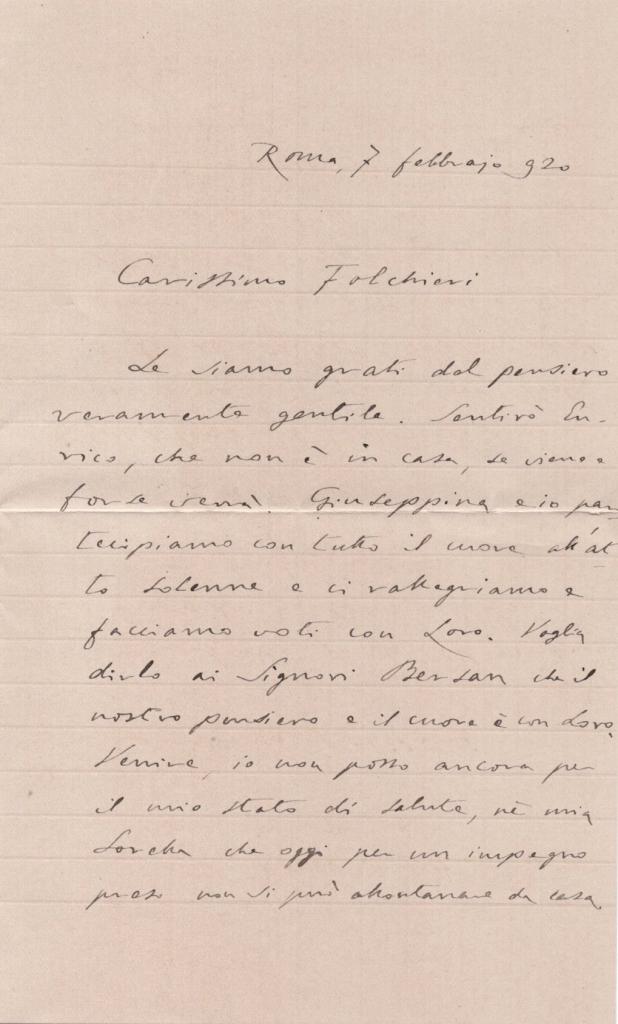 Roma, 7 febbrajo 920
Carissimo Folchieri
Le siamo grati del pensiero
veramente gentile. Sentirò En-
rico, che non è in casa, se viene e
forse verrà. Giuseppina e io par
tecipiamo con tutto il cuore all'at
to solenne e ci rallegriamo e
facciamo voti con Loro. Voglia
dirlo ai Signori Bersan che il
nostro pensiero e il cuore è con Loro.
Venire, io non posso ancora per
il mio stato di salute, nè mia
Sorella che oggi per un impegno
preso non si può allontanare da casa.